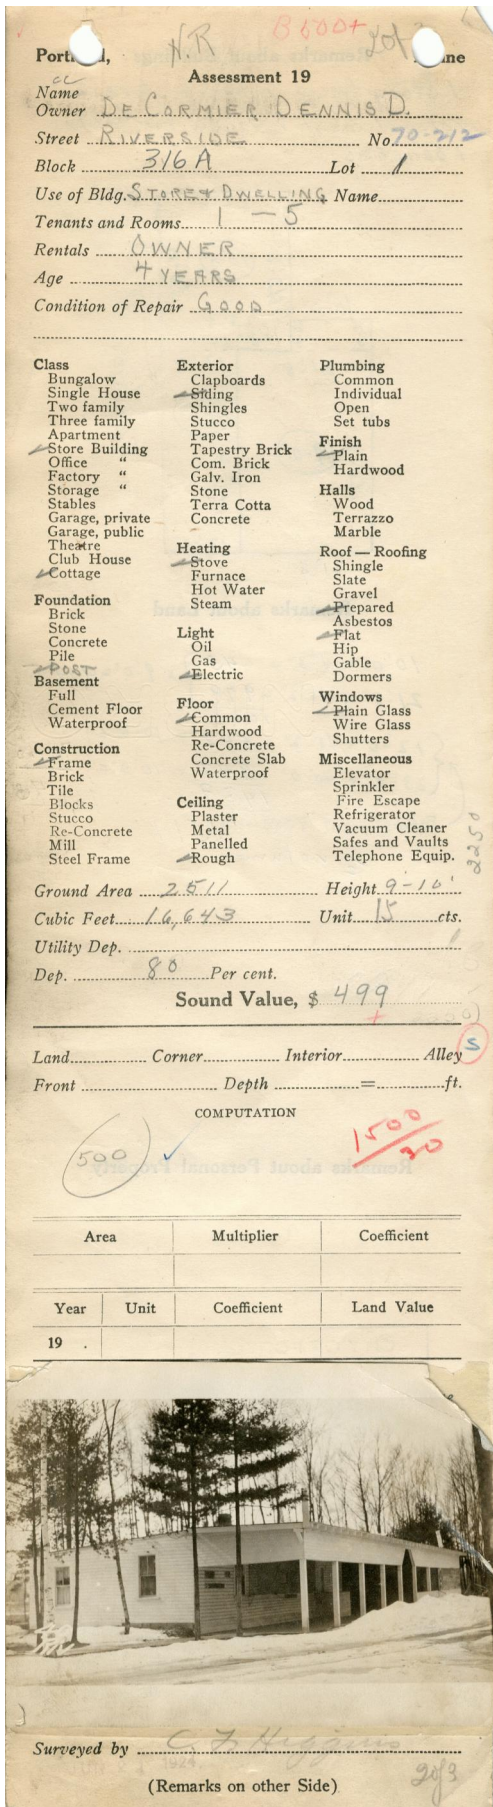 B 500+
NR
2 of
Portland, Maine
Assessment 19
Name
Owner DE CORMIER, DENNIS D.
Street RIVERSIDE No 70-212
Block 316A Lot 1
Use of Bldg. STORE & DWELLING Name
Tenants and Rooms 1 - 5
Rentals OWNER
Age 4 YEARS
Condition of Repair GOOD
Class
Bungalow
Single House
Two family
Three family
Apartment
Store Building
Office "
Factory "
Storage "
Stables
Garage, private
Garage, public
Theatre
Club House
Cottage
Foundation
Brick
Stone
Concrete
Pile
POST
Basement
Full
Cement Floor
Waterproof
Construction
Frame
Brick
Tile
Blocks
Stucco
Re-Concrete
Mill
Steel Frame
Exterior
Clapboards
Siding
Shingles
Stucco
Paper
Tapestry Brick
Com. Brick
Galv. Iron
Stone
Terra Cotta
Concrete
Heating
Stove
Furnace
Hot Water
Steam
Light
Oil
Gas
Electric
Floor
Common
Hardwood
Re-Concrete
Concrete Slab
Waterproof
Ceiling
Plaster
Metal
Panelled
Rough
Plumbing
Common
Individual
Open
Set tubs
Finish
Plain
Hardwood
Halls
Wood
Terrazzo
Marble
Roof — Roofing
Shingle
Slate
Gravel
Prepared
Asbestos
Flat
Hip
Gable
Dormers
Windows
Plain Glass
Wire Glass
Shutters
Miscellaneous
Elevator
Sprinkler
Fire Escape
Refrigerator
Vacuum Cleaner
Safes and Vaults
Telephone Equip.
2250
Ground Area 2511 Height 9-10'
Cubic Feet 16,643 Unit 15 cts.
Utility Dep.
Dep. 80 Per cent.
Sound Value, $ 499
S
Land Corner Interior Alley
Front Depth = ft.
COMPUTATION
500
1500
30
Area Multiplier Coefficient
Year Unit Coefficient Land Value
19 .
Surveyed by C. F. Higgins
1924
(Remarks on other Side)
2 of 3